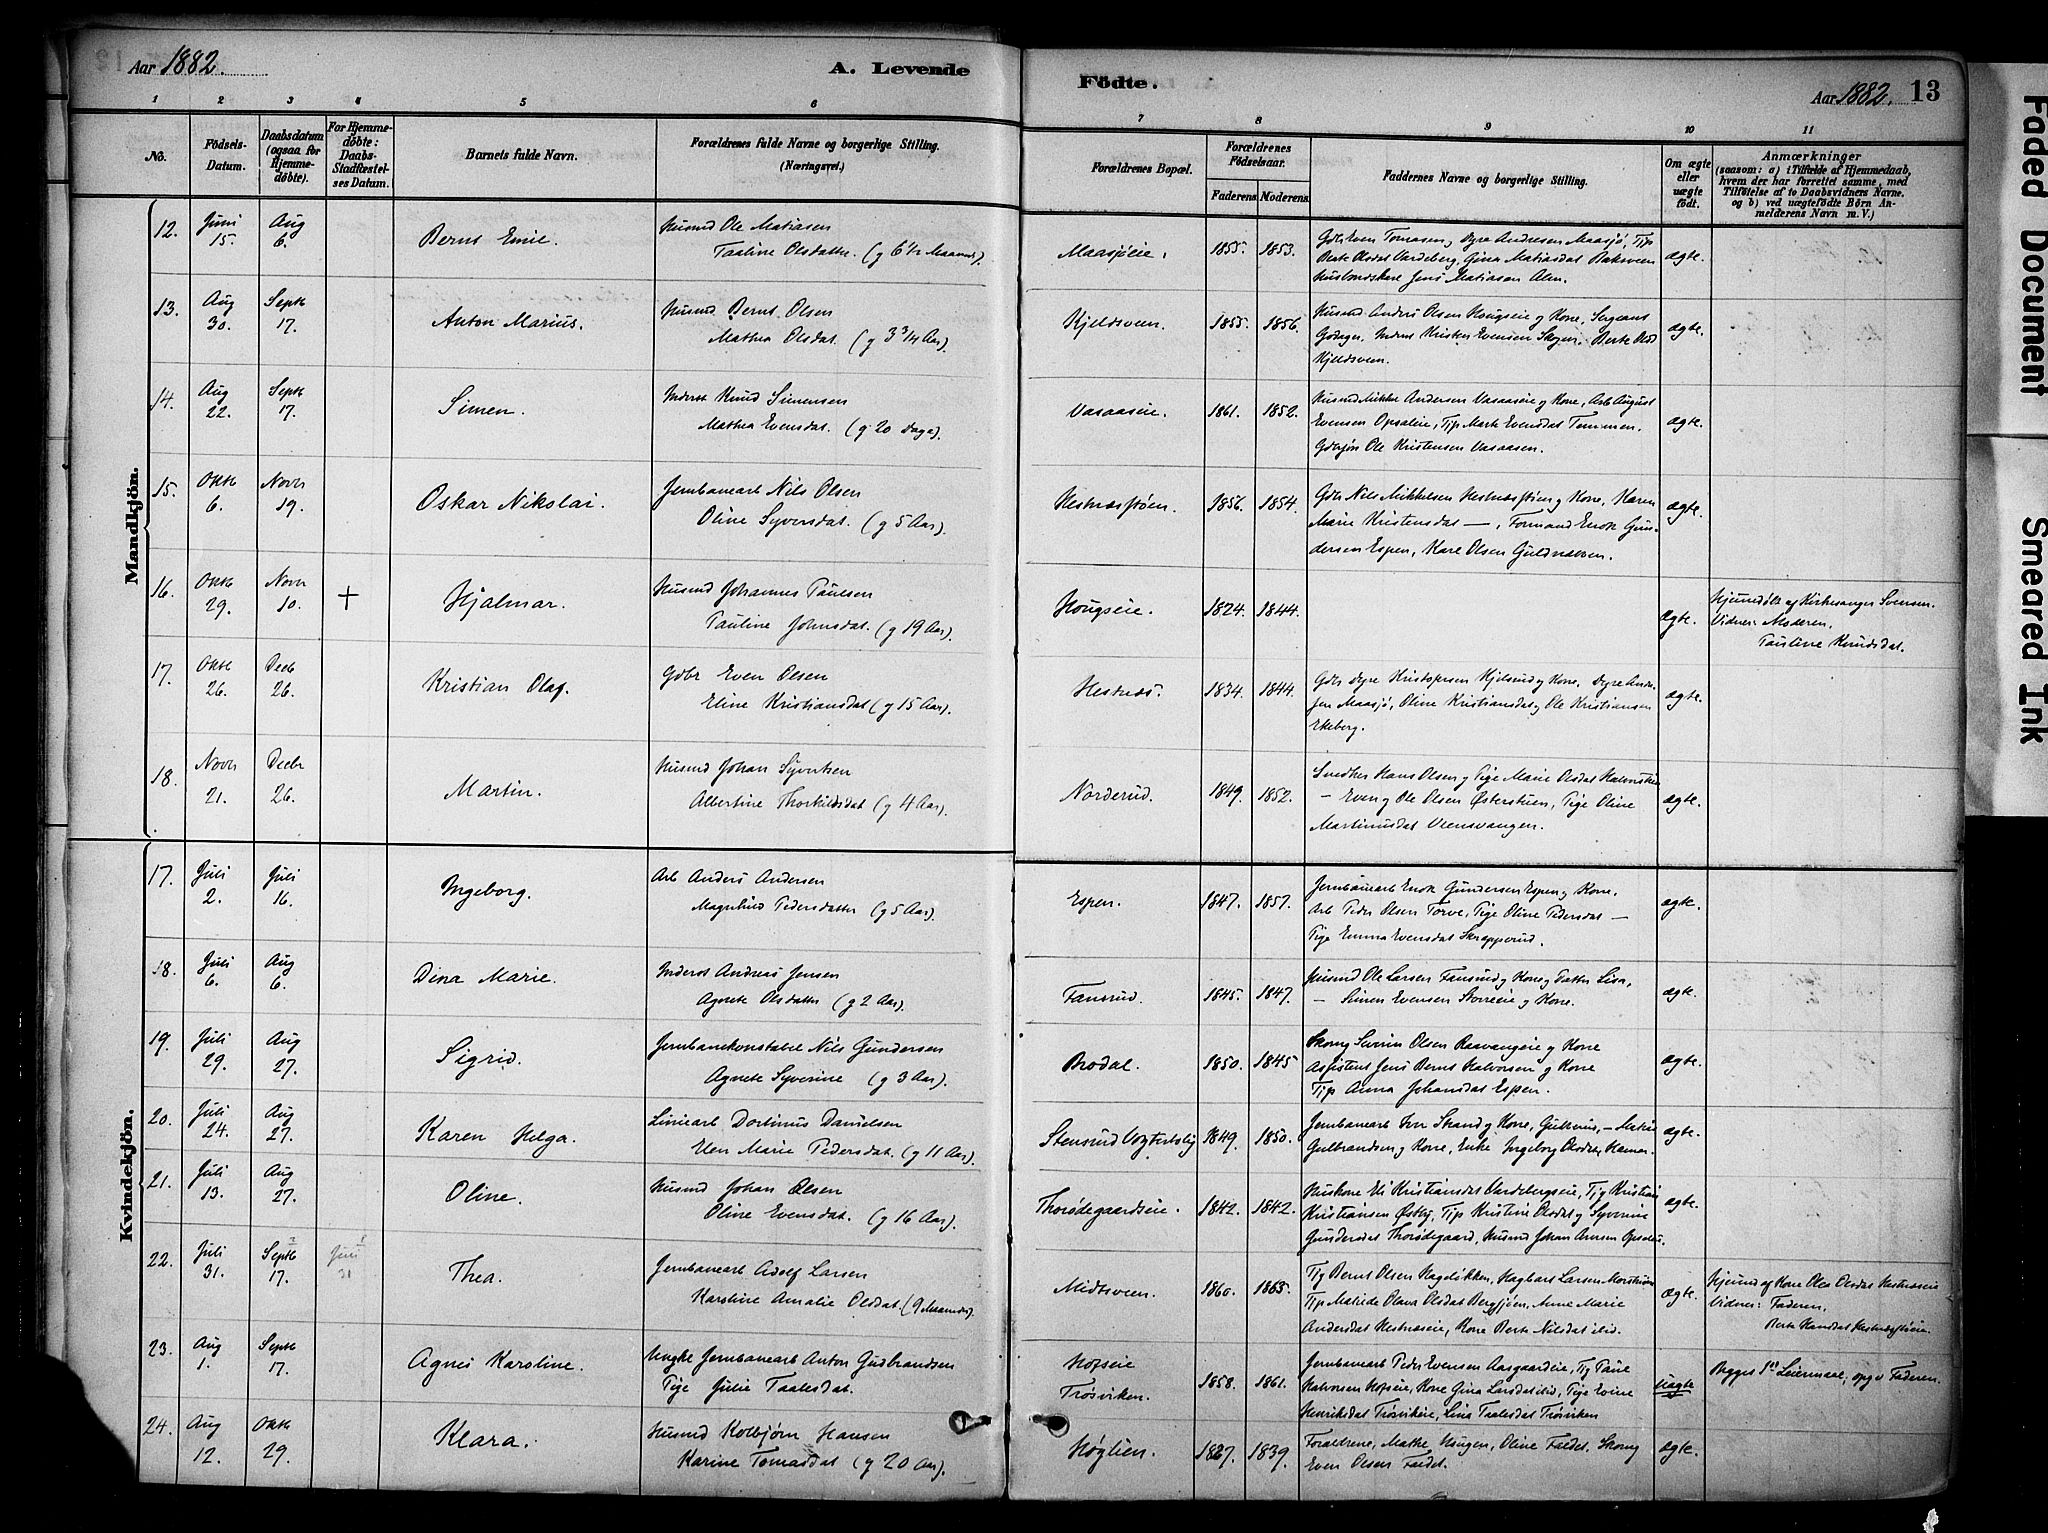 Aar 1882.
A. Levende
Födte.
Aar 1882. 13
1 2 3 4 5 6 7 8 9 10 11
No.
Födsels-Datum.
Daabsdatum (ogsaa for Hjemmedöbte).
For Hjemmedöbte: Daabs-Stadfæstelses Datum.
Barnets fulde Navn.
Forældrenes fulde Navne og borgerlige Stilling. (Næringsvei.)
Forældrenes Bopæl.
Forældrenes Födselsaar.
Faderens Moderens
Faddernes Navne og borgerlige Stilling.
Om ægte eller uægte födt.
Anmærkninger
(saasom: a) i Tilfælde af Hjemmedaab, hvem der har forrettet samme, med Tilföielse af to Daabsvidners Navne, og b) ved uægtefödte Börn Anmelderens Navn m. V.)
Mandkjön.
12. Juni 15. Aug 6. Bernt Emil. Husmd Ole Matiasen
Pauline Olsdatter (g 6 1/2 Maaned). Maasjøeie. 1855. 1853. Gdbr Even Tomasen, Dyre Andresen Maasjø, Pip
Berte Olsdat Vardeberg, Gina Matiasdat Bakeveen
Husbondskone Jens Matiasen Alm. ægte.
13. Aug 30. Septb 17. Anton Marius. Husmd Bernt Olsen
Mathea Olsdat. (g 3 3/4 Aar). Kjeldsveen. 1855. 1856. Husmd Anders Olsen Hougseie og Kone, Sergeant
Godager, Inderst Kristen Evensen Skogen. Berte Olsd
Kjeldsveen. ægte.
14. Aug 22. Septb 17. Simen. Inderst Knud Simensen
Mathea Evensdat. (g 20 Dage). Vasaaseie. 1861. 1852. Husmd Mikkel Andersen Vasaaseie og Kone, Arb August
Evensen Opsaleie, Pip Marte Evensdat Tømmen.
Gdbrsøn Ole Kristensen Vasaasen. ægte.
15. Oktb 6. Novbr 19. Oskar Nikolai. Jernbanearb Nils Olsen
Oline Syversdat. (g 5 Aar). Hestnæsstøen. 1856. 1854. Gdbr Nils Mikkelsen Hestnæsstøen og Kone, Karen
Marie Kristensdat —, Formand Enok Gundersen Espen, Kare Olsen ægte.
16. Oktb 29. Novbr 10. + Hjalmar. Husmd Johannes Paulsen
Pauline Johnsdat. (g 19 Aar). Hougseie. 1824. 1844. ægte. Hjemmedøbt af Kirkesanger Svensen.
Vidner: Moderen,
Pauline Knudsdat.
17. Oktb 26. Decb 26. Kristian Olaf. Gdbr Even Olsen
Eline Kristiansdat (g 15 Aar). Hestnæs. 1834. 1844. Gdbr Dyre Kristophersen Hjelsrud og Kone, Dyre Andresen Maasjø, Oline Kristiansdat og Ole Kristiansen
Ekeberg. ægte.
18. Novbr 21. Decbr 26. Martin. Husmd Johan Syvertsen
Albertine Thorkildsdat (g 4 Aar). Norderud. 1849. 1852. Snedker Hans Olsen og Pige Marie Olsdat
— Even og Ole Olsen Østerstuen, Pige Oline
Martinusdat Veensvangen. ægte.
Kvindekjön.
17. Juli 2. Juli 16. Ingeborg. Arb Anders Andersen
Magnhild Pedersdatter (g 5 Aar). Espen. 1847. 1857. Jernbanearb Enok Gundersen Espen og Kone.
Arb Peder Olsen Torve, Pige Oline Pedersdat —
Pige Emma Evensdat Skrapperud. ægte.
18. Juli 6. Aug 6. Dina Marie. Inderst Andreas Jensen
Agnete Olsdatter (g 2 Aar). Fansrud. 1845. 1847. Husmd Ole Larsen Fansrud og Kone og Datter Lisa,
— Simen Evensen Storreeie og Kone. ægte.
19. Juli 29. Aug 27. Sigrid. Jernbanekonstabel Nils Gundersen
Agnete Syverine (g 3 Aar). Brodal. 1850. 1845 Skomg Severin Olsen Raavangeie og Kone
Assistent Jens Bernt Halvorsen og Kone
Pip Anna Johansdat Espen. ægte.
20. Juli 24. Aug 27. Karen Helga. Liniearb Dortinus Danielsen
Elen Marie Pedersdat. (g 11 Aar). Stensrud Vogterbolig 1849. 1850. Jernbanearb Iver Strand og Kone,
Gulbrandsen og Kone, Enke Ingeborg Olsdtr, Hamar. ægte.
21. Juli 13. Aug 27. Oline. Husmd Johan Olsen
Oline Evensdat. (g 16 Aar). Thorødegaardseie. 1842. 1842. Huskone Eli Kristiansdat Vardebergseie, Tjg Kristian
Kristiansen Østby, Pip Kristine Olsdat og Syverine
Gundersdat Thorødegaard, Husmd Johan Arnesen Opsaleie. ægte.
22. Juli 31. Septb 17. Juli 31 Thea. Jernbanearb Adolf Larsen
Karoline Amalie Olsdat (9 Maaneder). Midtsveen. 1860. 1865. Tjg Bernt Olsen Hageløkken, Hagbart Larsen
Pip Matilde Olava Olsdat Bergsjøen, Anne Marie
Andersdat Hestnæseie, Kone Berte Nilsdat ibid. ægte. Hjemmed af Kone Olea Olsdat Hestnæseie
Vidner: Faderen,
Berte Hansdat Hestnæsstøeie.
23. Aug 1. Septb 17. Agnes Karoline. Ungkl Jernbanearb Anton Gudbrandsen
Pige Julie Paalesdat. Hofseie
Trøsviken. 1858. 1861. Jernbanearb Peder Evensen Aasgaardeie, Tjg Paul
Halvorsen Hofseie, Kone Gina Larsdat ibid, Pige Eline
Henriksdat Trøsvikeie, Lina Paalesdat Trøsviken uægte Begges 1ste Leiermaal, opg v Faderen.
24. Aug 12. Oktb 29. Klara. Husmd Kolbjørn Hansen
Karine Tomasdat (g 20 Aar). Høglien. 1837. 1839. Forældrene, Mathe Haugen, Oline Faldet, Skomg
Even Olsen Faldet. ægte.
Faded Document
Smeared Ink